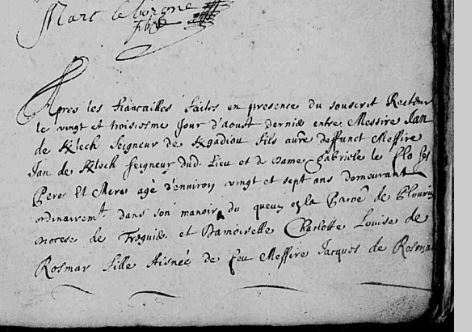 Marc le borgne
Apres les fiancailles faites en presence du souscrit Recteur
le vingt et troisiesme Jour d'aoust dernier entre Messire Jan
de Kllech Seigneur de Kgadiou fils deffunct Messire
Jan de Kllech seigneur dud. Lieu et de dame Gabriele le Flo ses
Pere et Mere agé d'environ vingt et sept ans demeurant
ordinairemt dans son manoir du en la Paroe de Plourin
de Treguier et Damoiselle Charlotte Louise de
Rosmar fille Aisnée de feu Messire Jacques de Rosmar